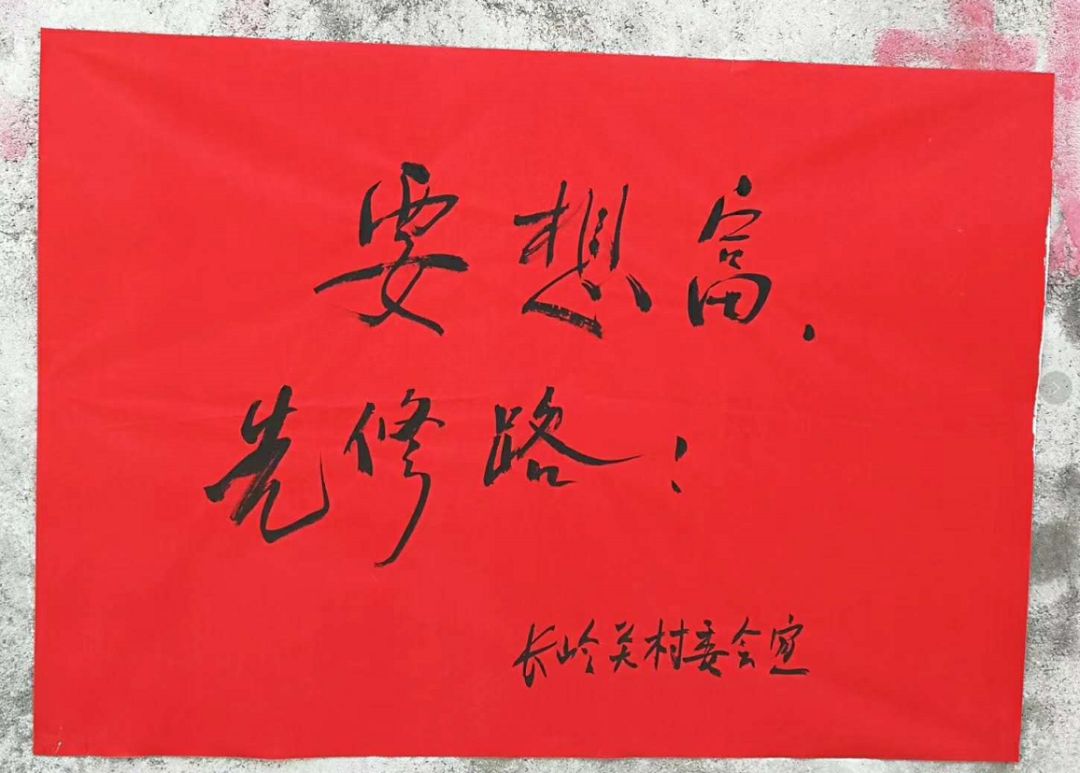 要想富，
先修路！
长岭关村委会宣